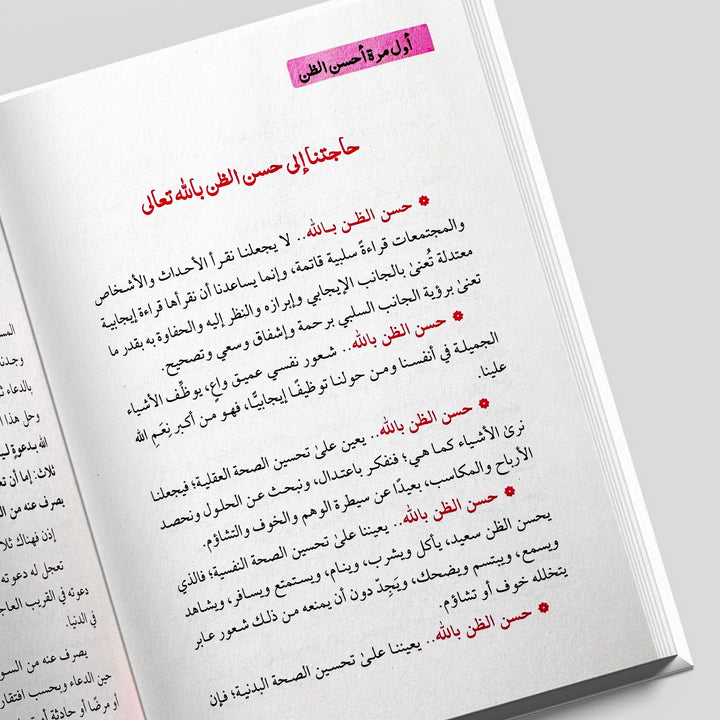 أول مرة أحسن الظن
حاجتنا إلى حسن الظن بالله تعالى
حسن الظن بالله.. لا يجعلنا نقرأ الأحداث والأشخاص
والمجتمعات قراءةً سلبية قاتمة، وإنما يساعدنا أن نقرأها قراءة إيجابية
معتدلة تُعنىٰ بالجانب الإيجابي وإبرازه والنظر إليه والحفاوة به بقدر ما
تعنىٰ برؤية الجانب السلبي برحمة وإشفاق وسعي وتصحيح.
حسن الظن بالله.. شعور نفسي عميق واعٍ، يوظِّف الأشياء
الجميلة في أنفسنا ومن حولنا توظيفًا إيجابيًّا، فهو من أكبر نِعَمِ الله
علينا.
حسن الظن بالله.. يعين علىٰ تحسين الصحة العقلية؛ فيجعلنا
نرىٰ الأشياء كما هي؛ فنفكر باعتدال، ونبحث عن الحلول ونحصد
الأرباح والمكاسب، بعيدًا عن سيطرة الوهم والخوف والتشاؤم.
حسن الظن بالله.. يعيننا علىٰ تحسين الصحة النفسية؛ فالذي
يحسن الظن سعيد، يأكل ويشرب، وينام، ويستمتع ويسافر، ويشاهد
ويسمع، ويبتسم ويضحك، ويَجِدّ دون أن يمنعه من ذلك شعور عابر
يتخلله خوف أو تشاؤم.
حسن الظن بالله.. يعيننا علىٰ تحسين الصحة البدنية؛ فإن
المس
وجدنا
بالدعاء
وحل هذا
الله بدعوةٍ
ثلاث: إما أن
يصرف عنه من
إذن فهناك ثلا
تعجل له دعوته
دعوته في القريب العاج
في الدنيا.
يصرف عنه من السو
حين الدعاء وبحسب افتقار
أو مرضًا أو حادثة أو